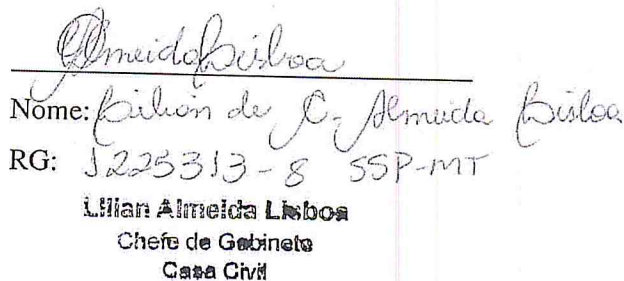 Almeida Lisboa
Nome: Lilian de C. Almeida Lisboa
RG: 1225313-8 SSP-MT
Lilian Almeida Lisboa
Chefe de Gabinete
Casa Civil